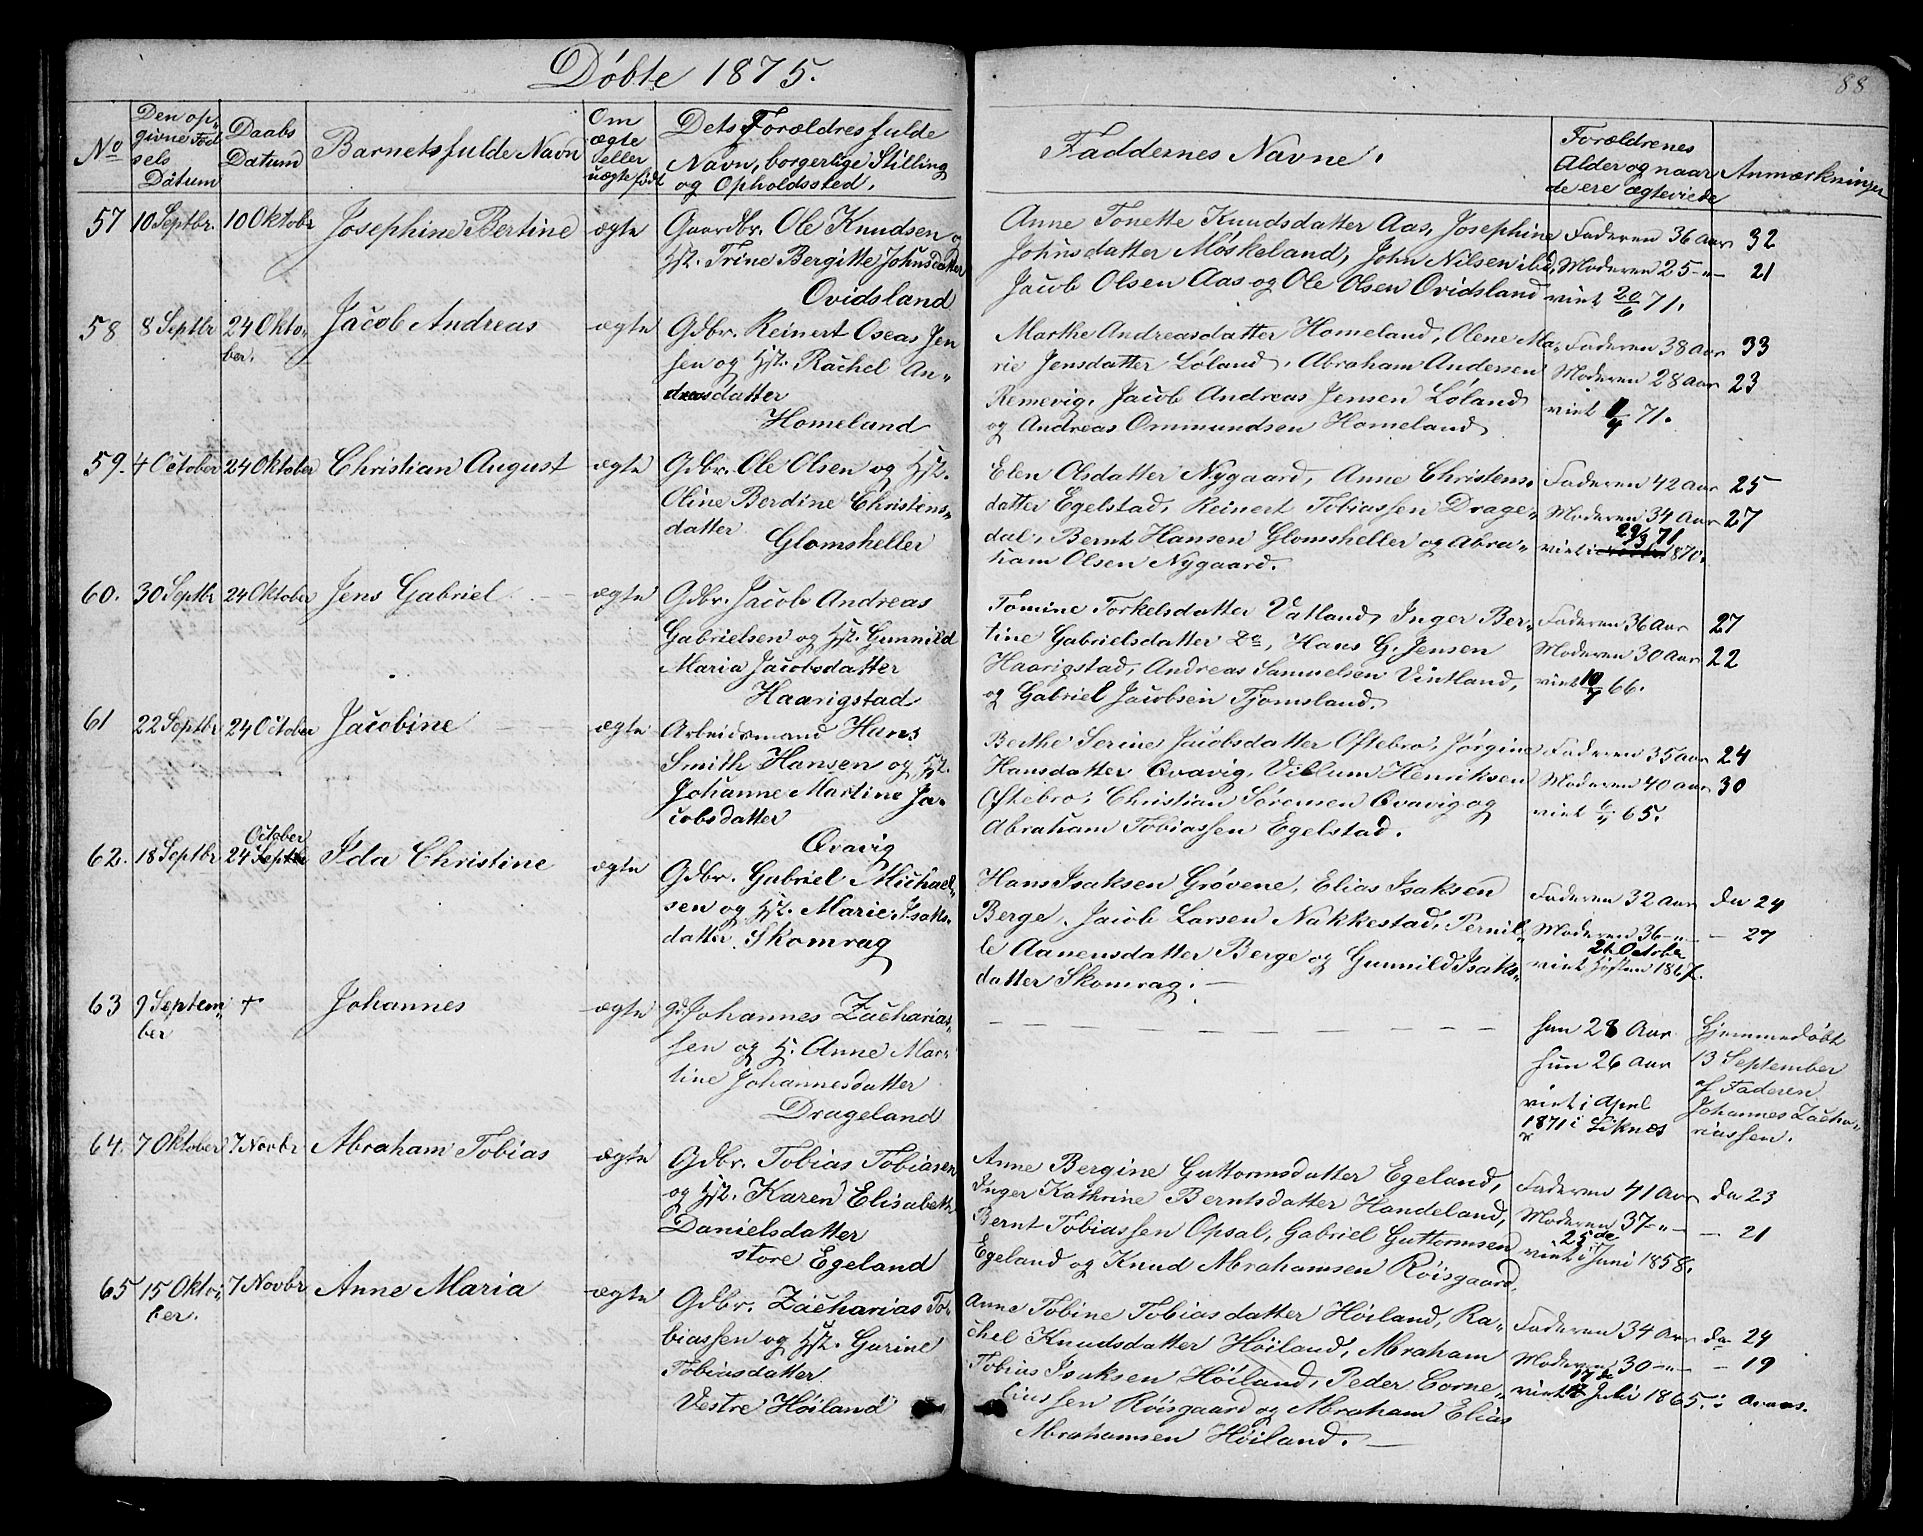 Døbte 1875.
88
No
Den op-
givne Fød
sels
Datum
Daabs
Datum
Barnets fulde Navn
Om
ægte
eller
uægte født
Dets Forældres fulde
Navn, borgerlige Stilling
og Opholdssted.
Faddernes Navne.
Forældrenes
Alder og naar
de ere ægteviede
Anmærkninger
57 10 Septbr. 10 Oktobr Josephine Bertine ægte
Gaardbr. Ole Knudsen og
Hst. Trine Bergitte Johnsdatter
Ovidsland
Anne Tonette Knudsdatter Aas, Josephine
Johnsdatter Møskeland, John Nilsen ibd,
Jacob Olsen Aas og Ole Olsen Ovidsland
Faderen 36 Aar 32
Moderen 25 -"- 21
viet 20/6 71.
58 8 Septbr 24 Okto-
ber.
Jacob Andreas ægte
Gdbr. Reinert Oseas Jen
sen og Hst. Rachel An-
dreasdatter
Homeland
Marthe Andreasdatter Homeland, Olene Ma-
rie Jensdatter Løland, Abraham Andersen
Remevig, Jacob Andreas Jensen Løland
og Andreas Ommundsen Homeland
Faderen 38 Aar 33
Moderen 28 Aar 23
viet 71.
59. 4 October 24 Oktober Christian August ægte
Gdbr. Ole Olsen og Hst.
Oline Berdine Christens-
datter
Glomsheller
Elen Olsdatter Nygaard, Anne Christens-
datter Egelstad, Reinert Tobiassen Drage-
dal, Bernt Hansen Glomsheller og Abra-
ham Olsen Nygaard.
Faderen 42 Aar 25
Moderen 34 Aar 27
29/3 71
viet i 1870.
60. 30 Septbr 24 Oktober Jens Gabriel ægte
Gdbr. Jacob Andreas
Gabrielsen og Hst. Gunnild
Maria Jacobsdatter
Haarigstad
Tomine Torkelsdatter Vatland, Inger Ber-
tine Gabrielsdatter do, Hans G. Jensen
Haarigstad, Andreas Samuelsen Vintland,
og Gabriel Jacobsen Tjomsland.
Faderen 36 Aar 27
Moderen 30 Aar 22
viet 10/7 66.
61 22 Septbr 24 October Jacobine ægte
Arbeidsmand Hans
Smith Hansen og Hst.
Johanne Martine Ja-
cobsdatter
Qvavig
Berthe Serine Jacobsdatter Øftebro, Jørgine
Hansdatter Qvavig, Villum Henriksen
Øftebro, Christian Sørensen Qvavig og
Abraham Tobiassen Egelstad.
Faderen 35 Aar 24
Moderen 40 Aar 30
viet 65.
62. 18 Septbr
October
24 Septbr Ida Christine ægte
Gdbr. Gabriel Michael-
sen og Hst. Marie Isaks-
datter Skomrag
Hans Isaksen Grøvene, Elias Isaksen
Berge, Jacob Larsen Nakkestad, Pernil-
le Aanensdatter Berge og Gunnild Isaks-
datter Skomrag.
Faderen 32 Aar da 24
Moderen 36 -"- - 27
26 Octobr
viet Høsten 1867.
63 9 Septem-
ber
+ Johannes ægte
gd. Johannes Zacharias-
sen og H. Anne Mar-
tine Johannesdatter
Drageland
han 28 Aar
hun 26 Aar
viet i April
1871 i Liknes
Hjemmedøbt
13 September
af Faderen
Johannes Zacha-
riassen.
64. 7 Oktober 7 Novbr Abraham Tobias ægte
Gdbr. Tobias Tobiasen
og Hst. Karen Elisabeth
Danielsdatter
store Egeland
Anne Bergine Guttormsdatter Egeland,
Inger Kathrine Berntsdatter Handeland,
Bernt Tobiassen Opsal, Gabriel Guttormsen
Egeland og Knud Abrahamsen Røisgaard.
Faderen 41 Aar da 23
Moderen 37 -"- - 21
25de
viet i Juni 1858.
65 15 Okto-
ber.
7 Novbr Anne Maria ægte
Gdbr. Zacharias To-
biassen og Hst. Gurine
Tobiasdatter
Vestre Høiland
Anne Tobine Tobiasdatter Høiland, Ra-
chel Knudsdatter Høiland, Abraham
Tobias Isaksen Høiland, Peder Corne-
liussen Røisgaard og Abraham Elias
Abrahamsen Høiland.
Faderen 34 Aar da 24
Moderen 30 -"- - 19
17de
viet Juli 1865.